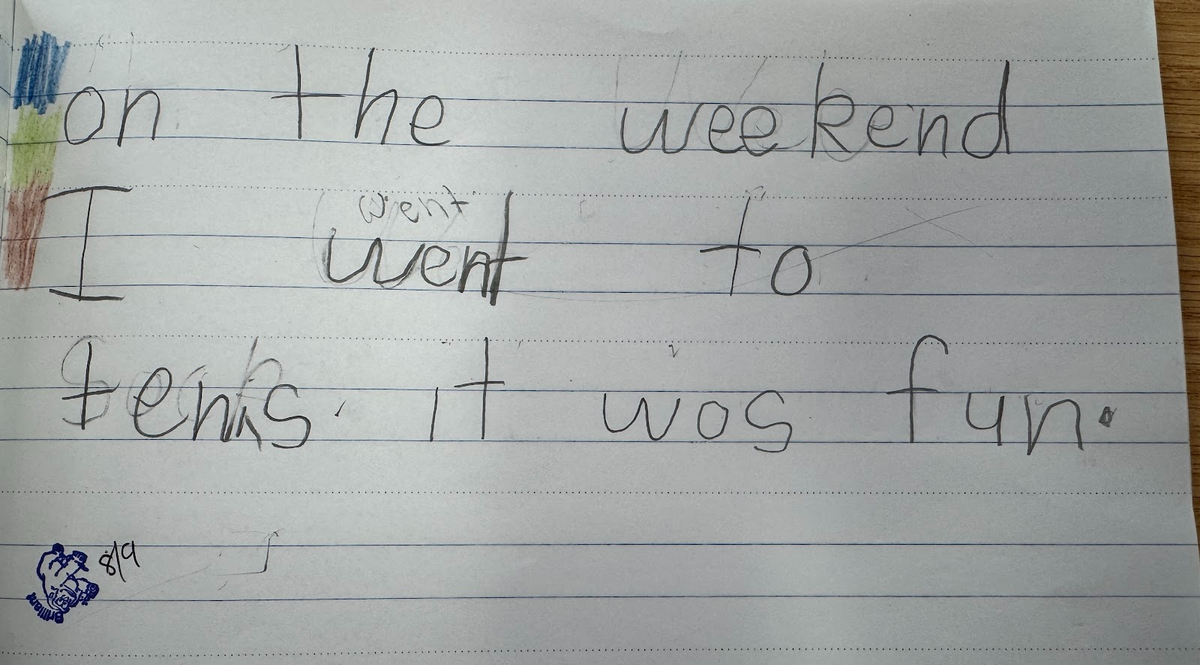 on the weekend
went
I went to
tenis. it wos fun.
Brilliant 8/9